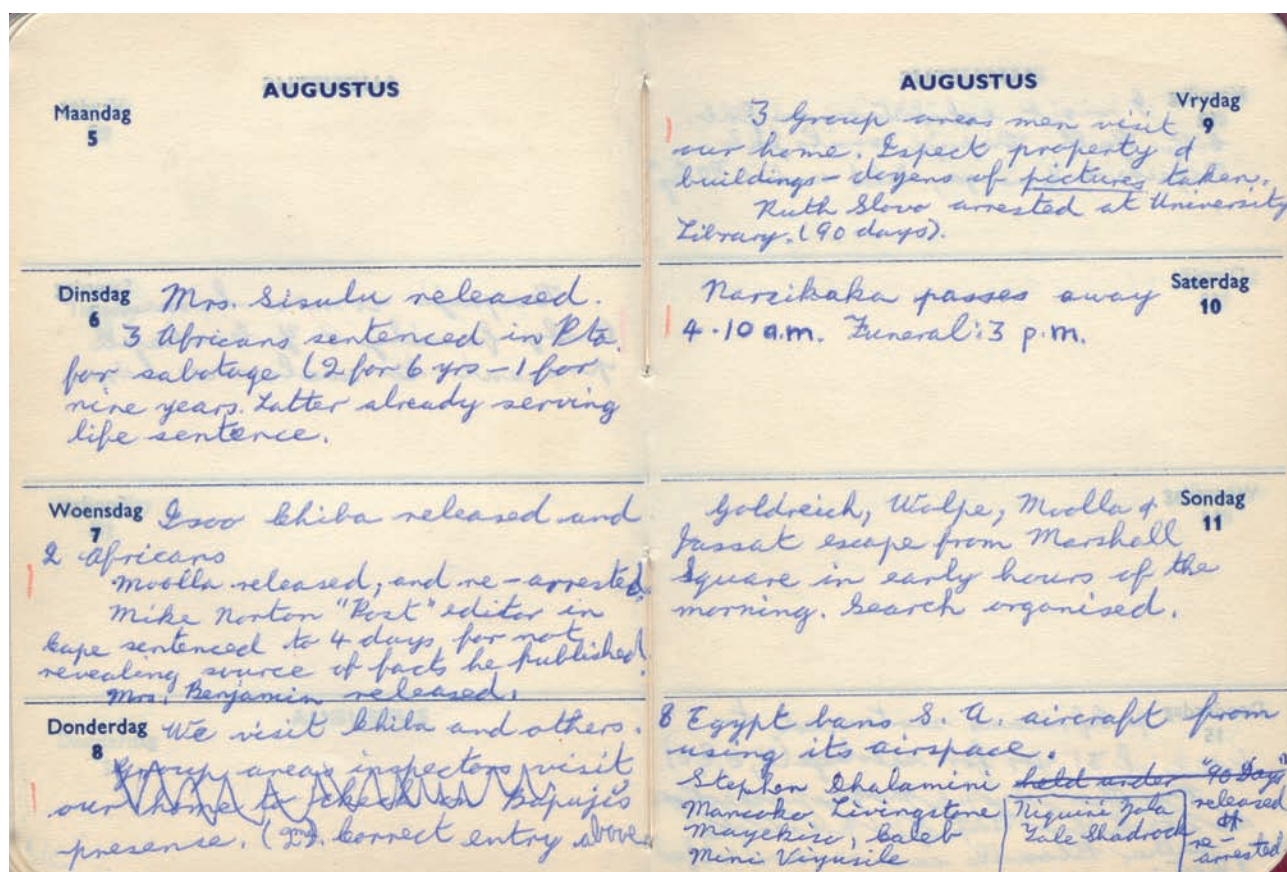 AUGUSTUS
Maandag
5
Dinsdag
6
Mrs. Sisulu released.
3 Africans sentenced in Pta.
for sabotage (2 for 6 yrs – 1 for
nine years. Latter already serving
life sentence.
Woensdag
7
Isoo Chiba released and
2 Africans
Moolla released, and re-arrested.
Mike Norton "Post" editor in
Cape sentenced to 4 days for not
revealing source of facts he published.
Mrs. Benjamin released.
Donderdag
8
We visit Chiba and others.
Group areas inspectors visit
our home to check on Bapuji's
presense. (2nd). Correct entry above
AUGUSTUS
Vrydag
9
3 Group areas men visit
our home. Ispect property &
buildings – dozens of pictures taken.
Ruth Slovo arrested at University
Library. (90 days).
Saterdag
10
Narsikaka passes away
4.10 a.m. Funeral: 3 p.m.
Sondag
11
Goldreich, Wolpe, Moolla &
Jassat escape from Marshall
Square in early hours of the
morning. Search organised.
8 Egypt bans S.A. aircraft from
using its airspace.
Stephen Dhalamini held under "90 Day"
Mancoko, Livingstone
Mayekiso, Caleb
Mini Viyusile
Niquini Zola
Zale Shadrock
released
&
re-
arrested